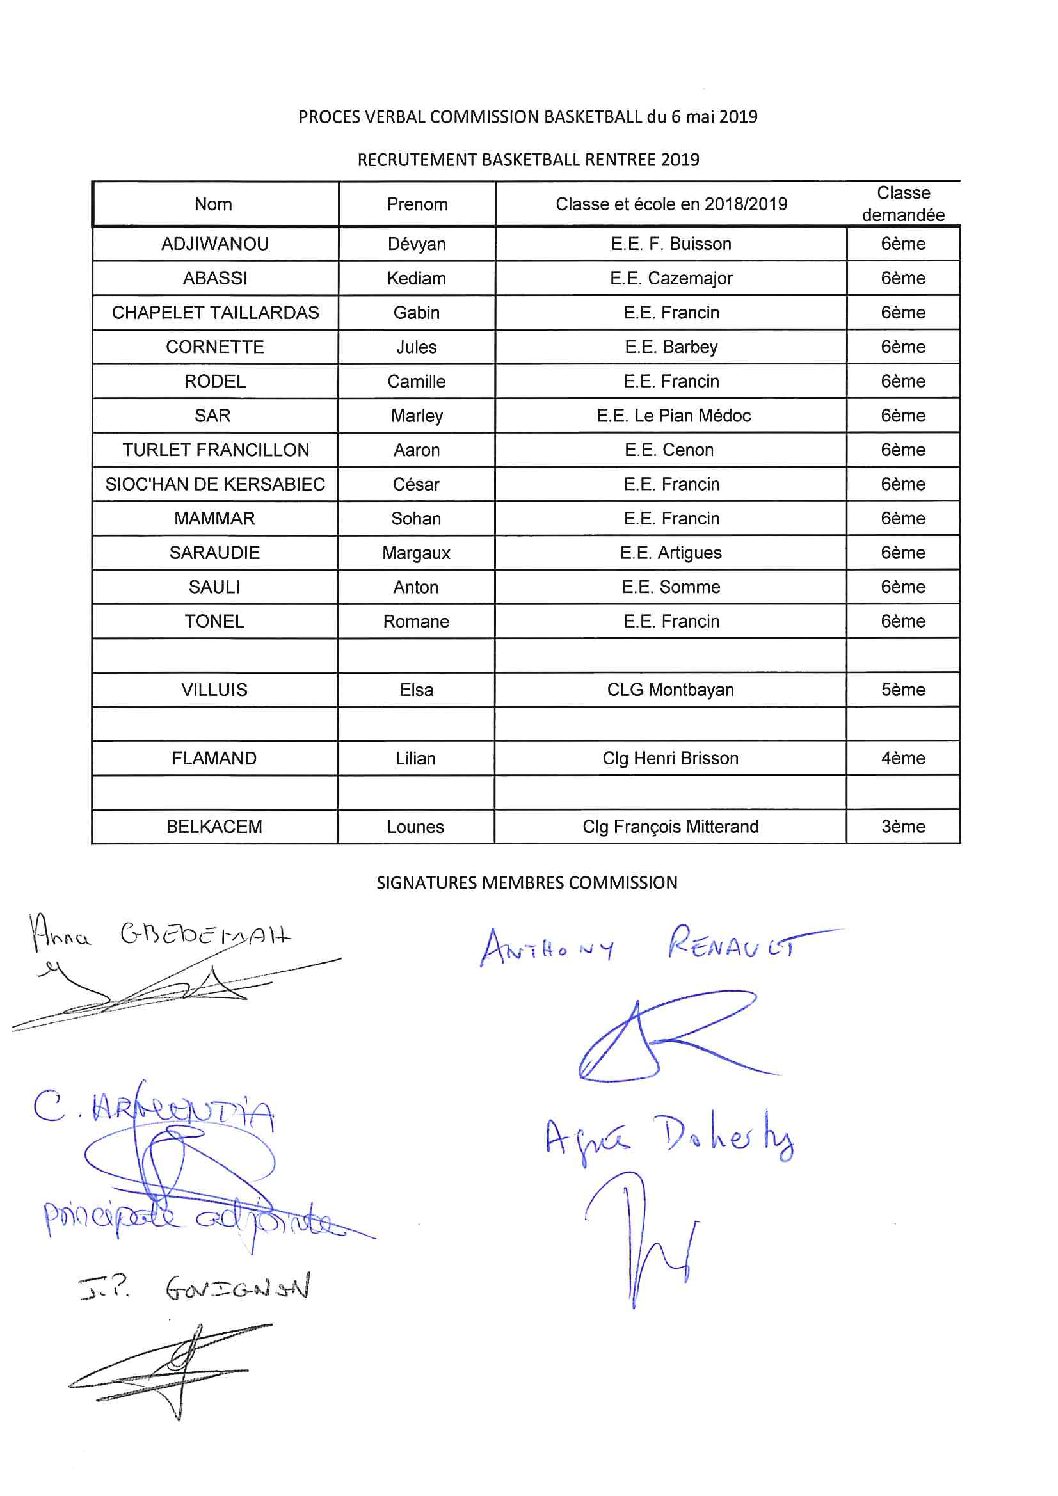 PROCES VERBAL COMMISSION BASKETBALL du 6 mai 2019
RECRUTEMENT BASKETBALL RENTREE 2019
Nom Prenom Classe et école en 2018/2019 Classe demandée
ADJIWANOU Dévyan E.E. F. Buisson 6ème
ABASSI Kediam E.E. Cazemajor 6ème
CHAPELET TAILLARDAS Gabin E.E. Francin 6ème
CORNETTE Jules E.E. Barbey 6ème
RODEL Camille E.E. Francin 6ème
SAR Marley E.E. Le Pian Médoc 6ème
TURLET FRANCILLON Aaron E.E. Cenon 6ème
SIOC'HAN DE KERSABIEC César E.E. Francin 6ème
MAMMAR Sohan E.E. Francin 6ème
SARAUDIE Margaux E.E. Artigues 6ème
SAULI Anton E.E. Somme 6ème
TONEL Romane E.E. Francin 6ème
VILLUIS Elsa CLG Montbayan 5ème
FLAMAND Lilian Clg Henri Brisson 4ème
BELKACEM Lounes Clg François Mitterand 3ème
SIGNATURES MEMBRES COMMISSION
Anna
ANTHONY RENAULT
AR
C.
Doherty
principale adjointe
J.P. GOUIGNON